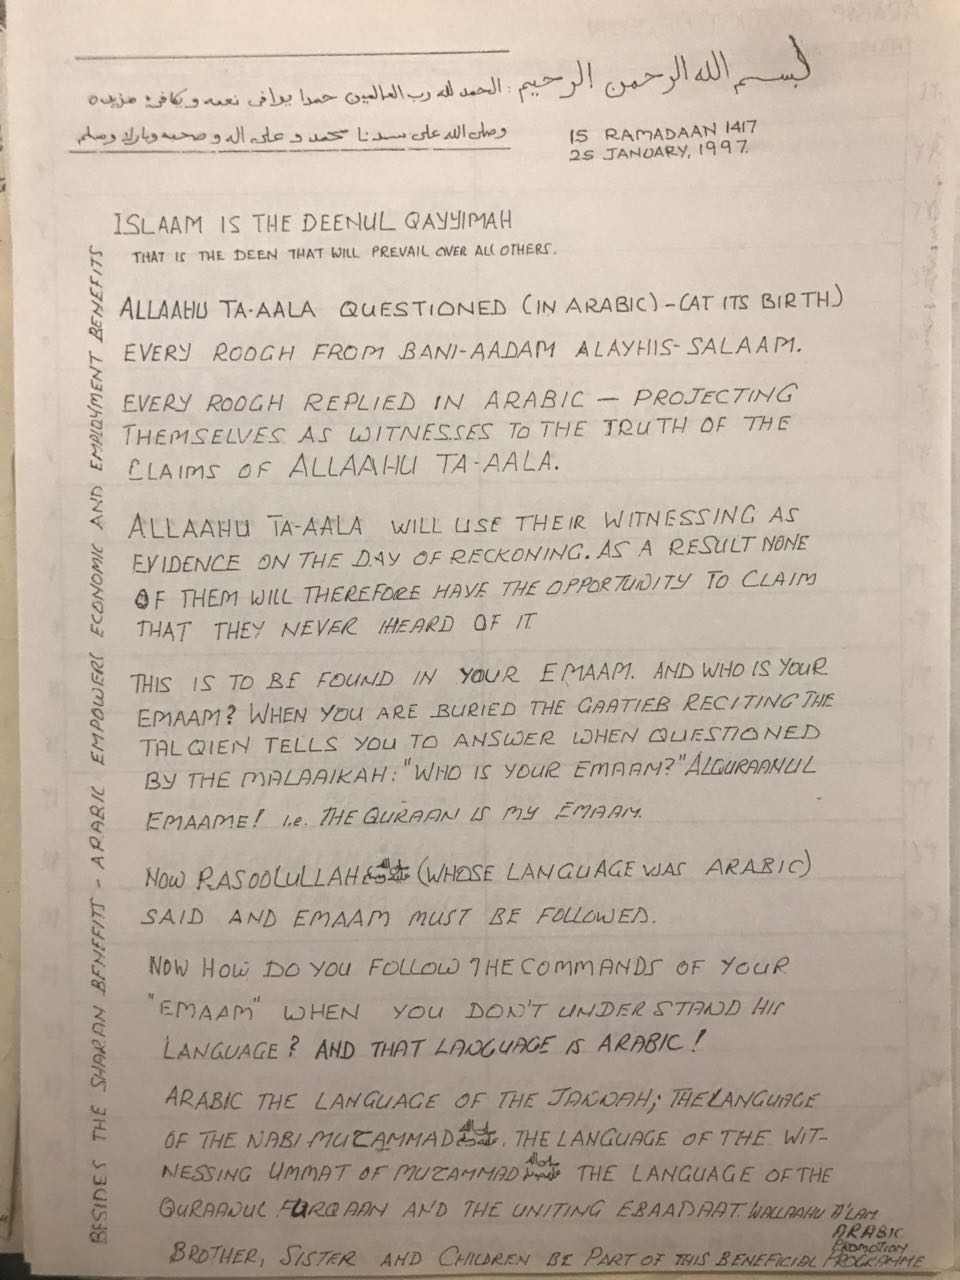 بسم الله الرحمن الرحيم . الحمد لله رب العالمين حمدا يوافى نعمه و يكافئ مزيده
وصلى الله على سيدنا محمد و على اله و صحبه وبارك وسلم
15 RAMADAAN 1417
25 JANUARY, 1997.
ISLAAM IS THE DEENUL QAYYIMAH
THAT IS THE DEEN THAT WILL PREVAIL OVER ALL OTHERS.
ALLAAHU TA-AALA QUESTIONED (IN ARABIC) - (AT ITS BIRTH.)
EVERY ROOGH FROM BANI-AADAM ALAYHIS-SALAAM.
EVERY ROOGH REPLIED IN ARABIC — PROJECTING
THEMSELVES AS WITNESSES TO THE TRUTH OF THE
CLAIMS OF ALLAAHU TA-AALA.
ALLAAHU TA-AALA WILL USE THEIR WITNESSING AS
EVIDENCE ON THE DAY OF RECKONING. AS A RESULT NONE
OF THEM WILL THEREFORE HAVE THE OPPORTUNITY TO CLAIM
THAT THEY NEVER HEARD OF IT
THIS IS TO BE FOUND IN YOUR EMAAM. AND WHO IS YOUR
EMAAM? WHEN YOU ARE BURIED THE GAATIEB RECITING THE
TALQIEN TELLS YOU TO ANSWER WHEN QUESTIONED
BY THE MALAAIKAH: "WHO IS YOUR EMAAM?" ALQURAANUL
EMAAME! i.e. THE QURAAN IS MY EMAAM.
NOW RASOOLULLAH ﷺ (WHOSE LANGUAGE WAS ARABIC)
SAID AND EMAAM MUST BE FOLLOWED.
NOW HOW DO YOU FOLLOW THE COMMANDS OF YOUR
"EMAAM" WHEN YOU DON'T UNDERSTAND HIS
LANGUAGE? AND THAT LANGUAGE IS ARABIC!
ARABIC THE LANGUAGE OF THE JANNAH; THE LANGUAGE
OF THE NABI MUZAMMAD ﷺ. THE LANGUAGE OF THE WIT-
NESSING UMMAT OF MUZAMMAD ﷺ THE LANGUAGE OF THE
QURAANUL FURQAAN AND THE UNITING EBAADAAT. WALLAAHU A'LAM
BROTHER, SISTER AND CHILDREN BE PART OF THIS BENEFICIAL ARABIC
PROMOTION
PROGRAMME
BESIDES THE SHARAN BENEFITS - ARABIC EMPOWERS ECONOMIC AND EMPLOYMENT BENEFITS